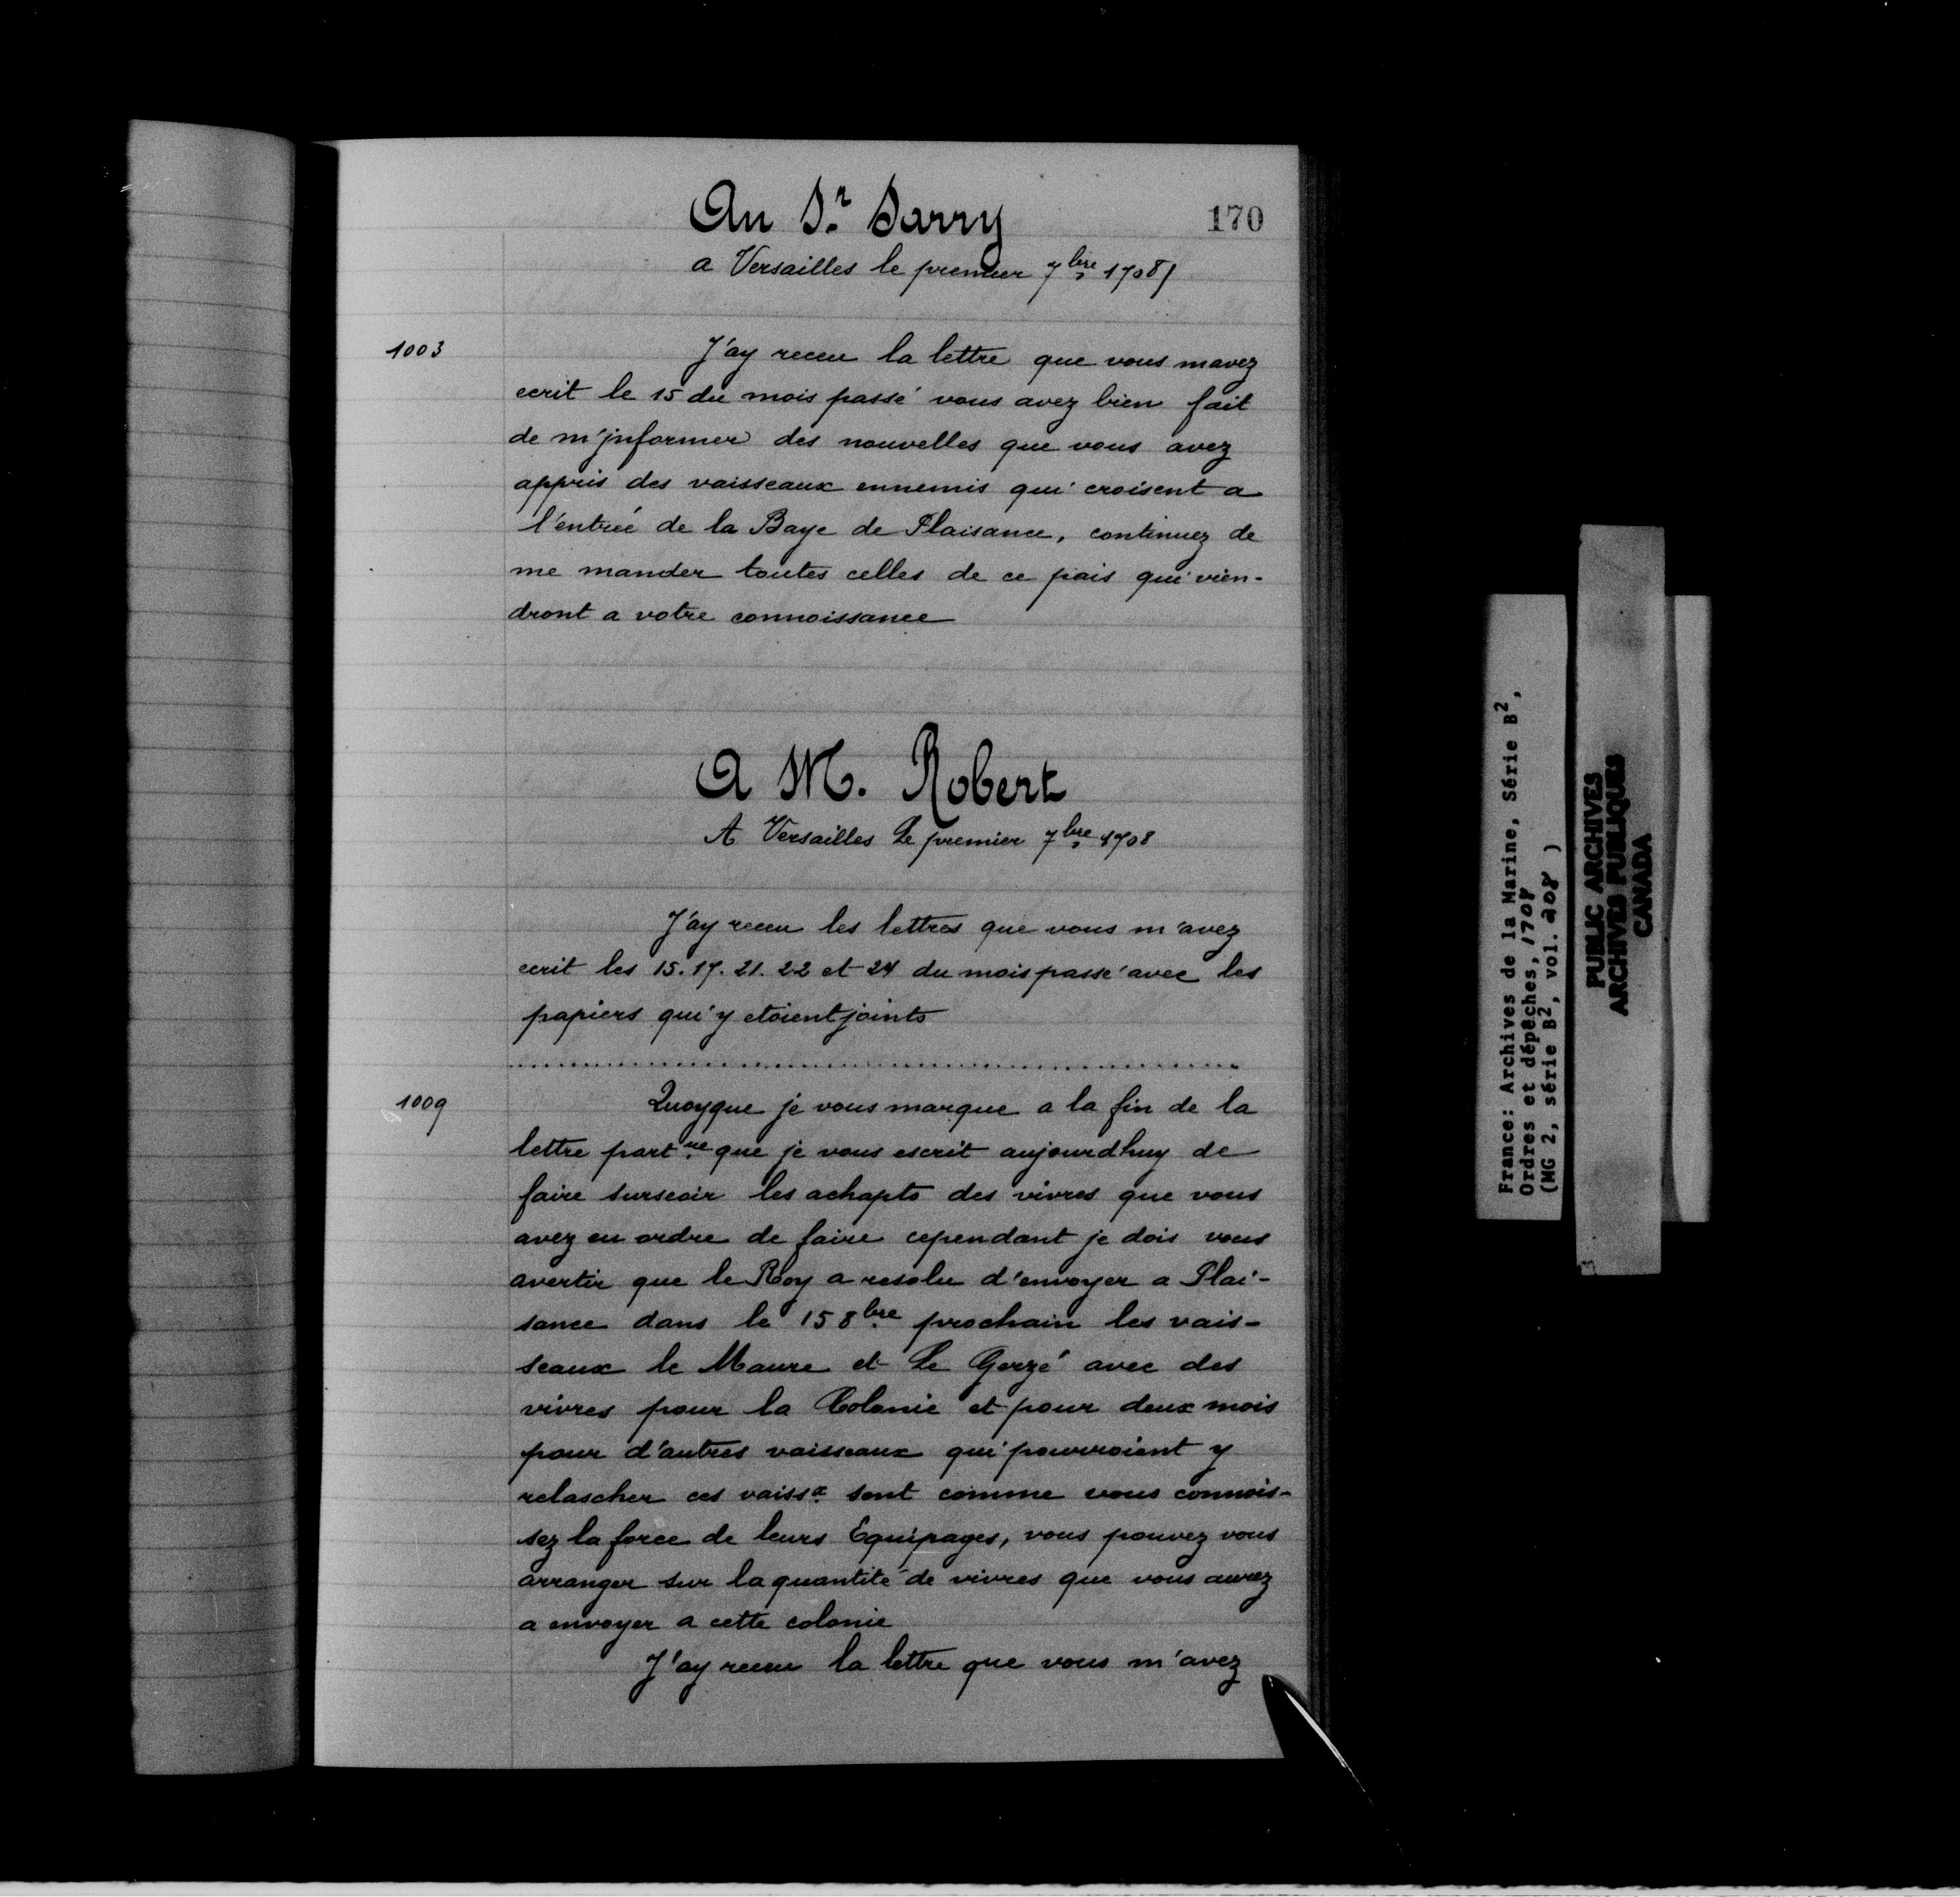 170
Au S.r Sarry
a Versailles le premier 7bre 1708/
1003
J'ay receu la lettre que vous mavez
ecrit le 15 du mois passé vous avez bien fait
de m'jnformer des nouvelles que vous avez
appris des vaisseaux ennemis qui croisent a
l'entrée de la Baye de Plaisance, continuez de
me mander toutes celles de ce pais qui vien-
dront a votre connoissance
A M. Robert
A Versailles Le premier 7bre 1708
J'ay receu les lettres que vous m'avez
ecrit les 15. 17. 21. 22 et 24 du mois passé avec les
papiers qui y etoient joints
1009
Quoyque je vous marque a la fin de la
lettre part.re que je vous escrit aujourdhuy de
faire surseoir les achapts des vivres que vous
avez eu ordre de faire cependant je dois vous
avertir que le Roy a resolu d'envoyer a Plai-
sance dans le 15 8bre prochain les vais-
seaux le Maure et Le Gerzé avec des
vivres pour la Colonie et pour deux mois
pour d'autres vaisseaux qui pourroient y
relascher ces vaissx sont comme vous connois-
sez la force de leurs Equipages, vous pouvez vous
arranger sur la quantité de vivres que vous aurez
a envoyer a cette colonie
J'ay receu la lettre que vous m'avez
France: Archives de la Marine, Série B2,
Ordres et dépêches, 1708
(MG 2, série B2, vol. 208 )
PUBLIC ARCHIVES
ARCHIVES PUBLIQUES
CANADA